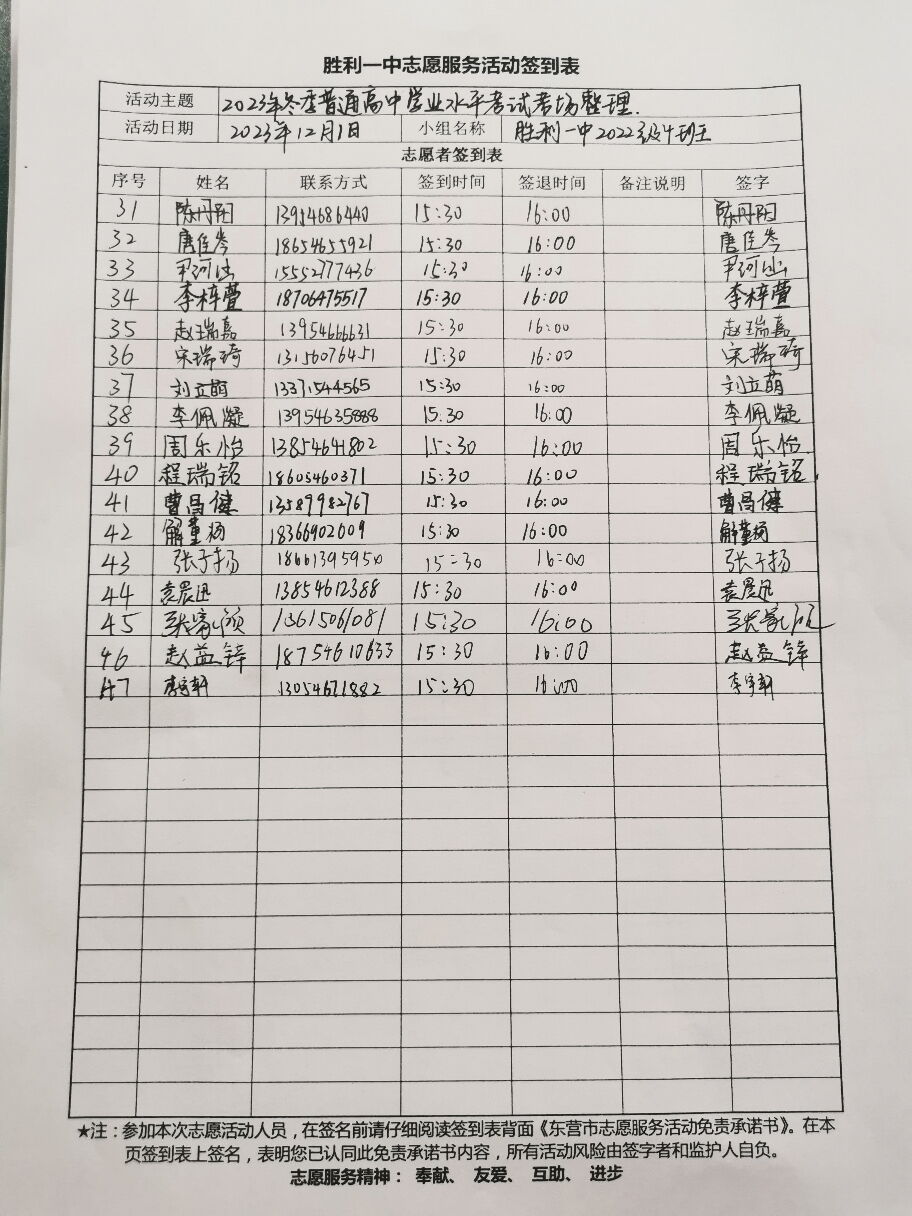 胜利一中志愿服务活动签到表
活动主题 2023年冬季普通高中学业水平考试考场整理.
活动日期 2023年12月1日 小组名称 胜利一中2022级4班王
志愿者签到表
序号 姓名 联系方式 签到时间 签退时间 备注说明 签字
31 陈丹阳 13954686440 15:30 16:00 陈丹阳
32 唐佳岑 18654655921 15:30 16:00 唐佳岑
33 15552777436 15:30 16:00
34 李梓萱 18706475517 15:30 16:00 李梓萱
35 赵瑞嘉 13954666631 15:30 16:00 赵瑞嘉
36 宋瑞琦 13156076451 15:30 16:00 宋瑞琦
37 刘立萌 13371544565 15:30 16:00 刘立萌
38 李佩凝 13954635888 15:30 16:00 李佩凝
39 周乐怡 13854641802 15:30 16:00 周乐怡
40 程瑞铭 18605460371 15:30 16:00 程瑞铭
41 曹昌健 13589982767 15:30 16:00 曹昌健
42 解董杨 18366902609 15:30 16:00 解董杨
43 张子扬 18661395950 15:30 16:00 张子扬
44 袁晨迅 13854612388 15:30 16:00 袁晨迅
45 13615061081 15:30 16:00
46 赵益锌 18754610633 15:30 16:00 赵益锌
47 李宇轩 13054671882 15:30 16:00 李宇轩
★注：参加本次志愿活动人员，在签名前请仔细阅读签到表背面《东营市志愿服务活动免责承诺书》。在本
页签到表上签名，表明您已认同此免责承诺书内容，所有活动风险由签字者和监护人自负。
志愿服务精神： 奉献、 友爱、 互助、 进步